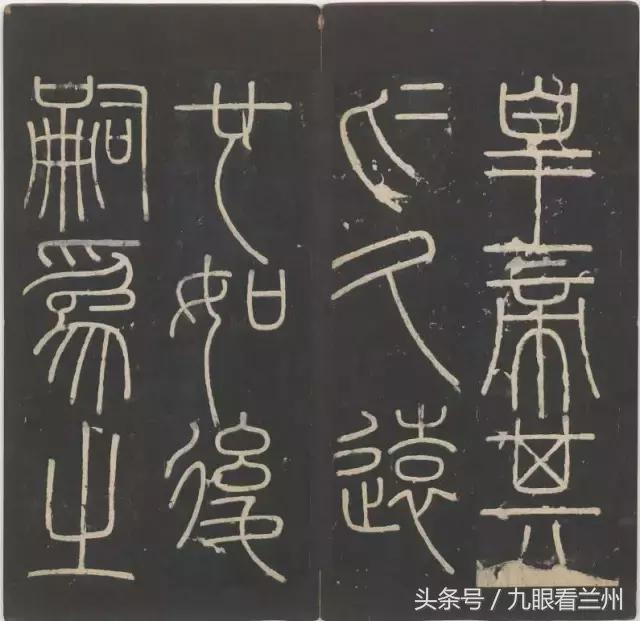 皇帝其
於久遠
也如後
嗣為之
头条号 / 九眼看兰州